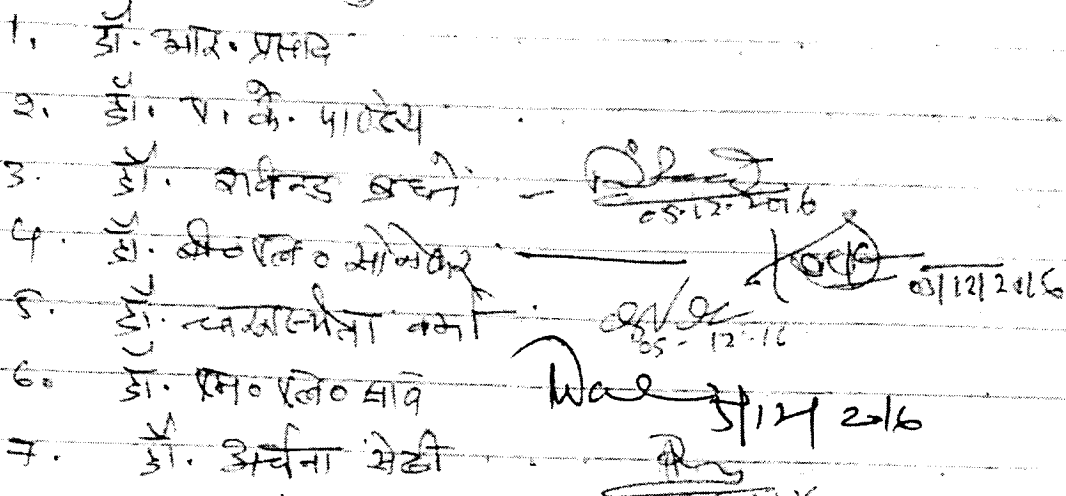 1. डॉ. आर. प्रसाद
2. डॉ. ए. के. पाण्डेय
3. डॉ. रविन्द्र ब्रम्हे - 05.12.2016
4. डॉ. बी०एल० सोनेकर 05/12/2016
5. डॉ. वर्मा 05-12-16
6. डॉ. एम० एल० सावे 5/12/2016
7. डॉ. अर्चना सेठी